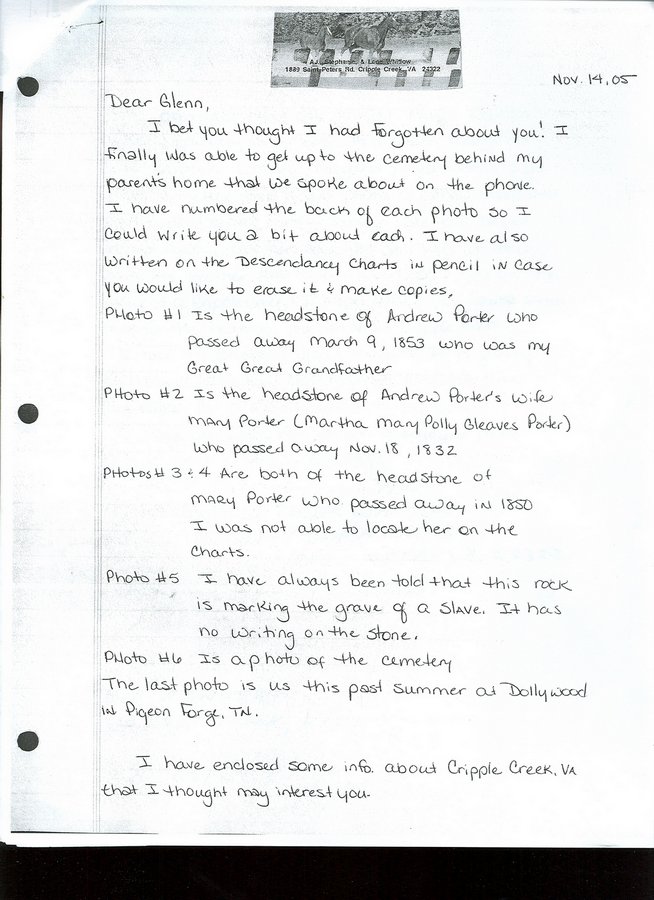 A.J., Stephanie, & Logan Whitlow
1889 Saint Peters Rd. Cripple Creek, VA 24322
Nov. 14, 05
Dear Glenn,
I bet you thought I had forgotten about you! I
finally was able to get up to the cemetery behind my
parents home that we spoke about on the phone.
I have numbered the back of each photo so I
could write you a bit about each. I have also
written on the Descendancy Charts in pencil in case
you would like to erase it & make copies.
Photo #1 Is the headstone of Andrew Porter who
passed away March 9, 1853 who was my
Great Great Grandfather
PHoto #2 Is the headstone of Andrew Porter's wife
Mary Porter (Martha Mary Polly Gleaves Porter)
who passed away Nov. 18, 1832
PHotos # 3 & 4 Are both of the headstone of
Mary Porter who passed away in 1850
I was not able to locate her on the
charts.
Photo #5 I have always been told that this rock
is marking the grave of a slave. It has
no writing on the stone.
Photo #6 Is a photo of the cemetery
The last photo is us this past summer at Dollywood
in Pigeon Forge, TN.
I have enclosed some info. about Cripple Creek, VA
that I thought may interest you.